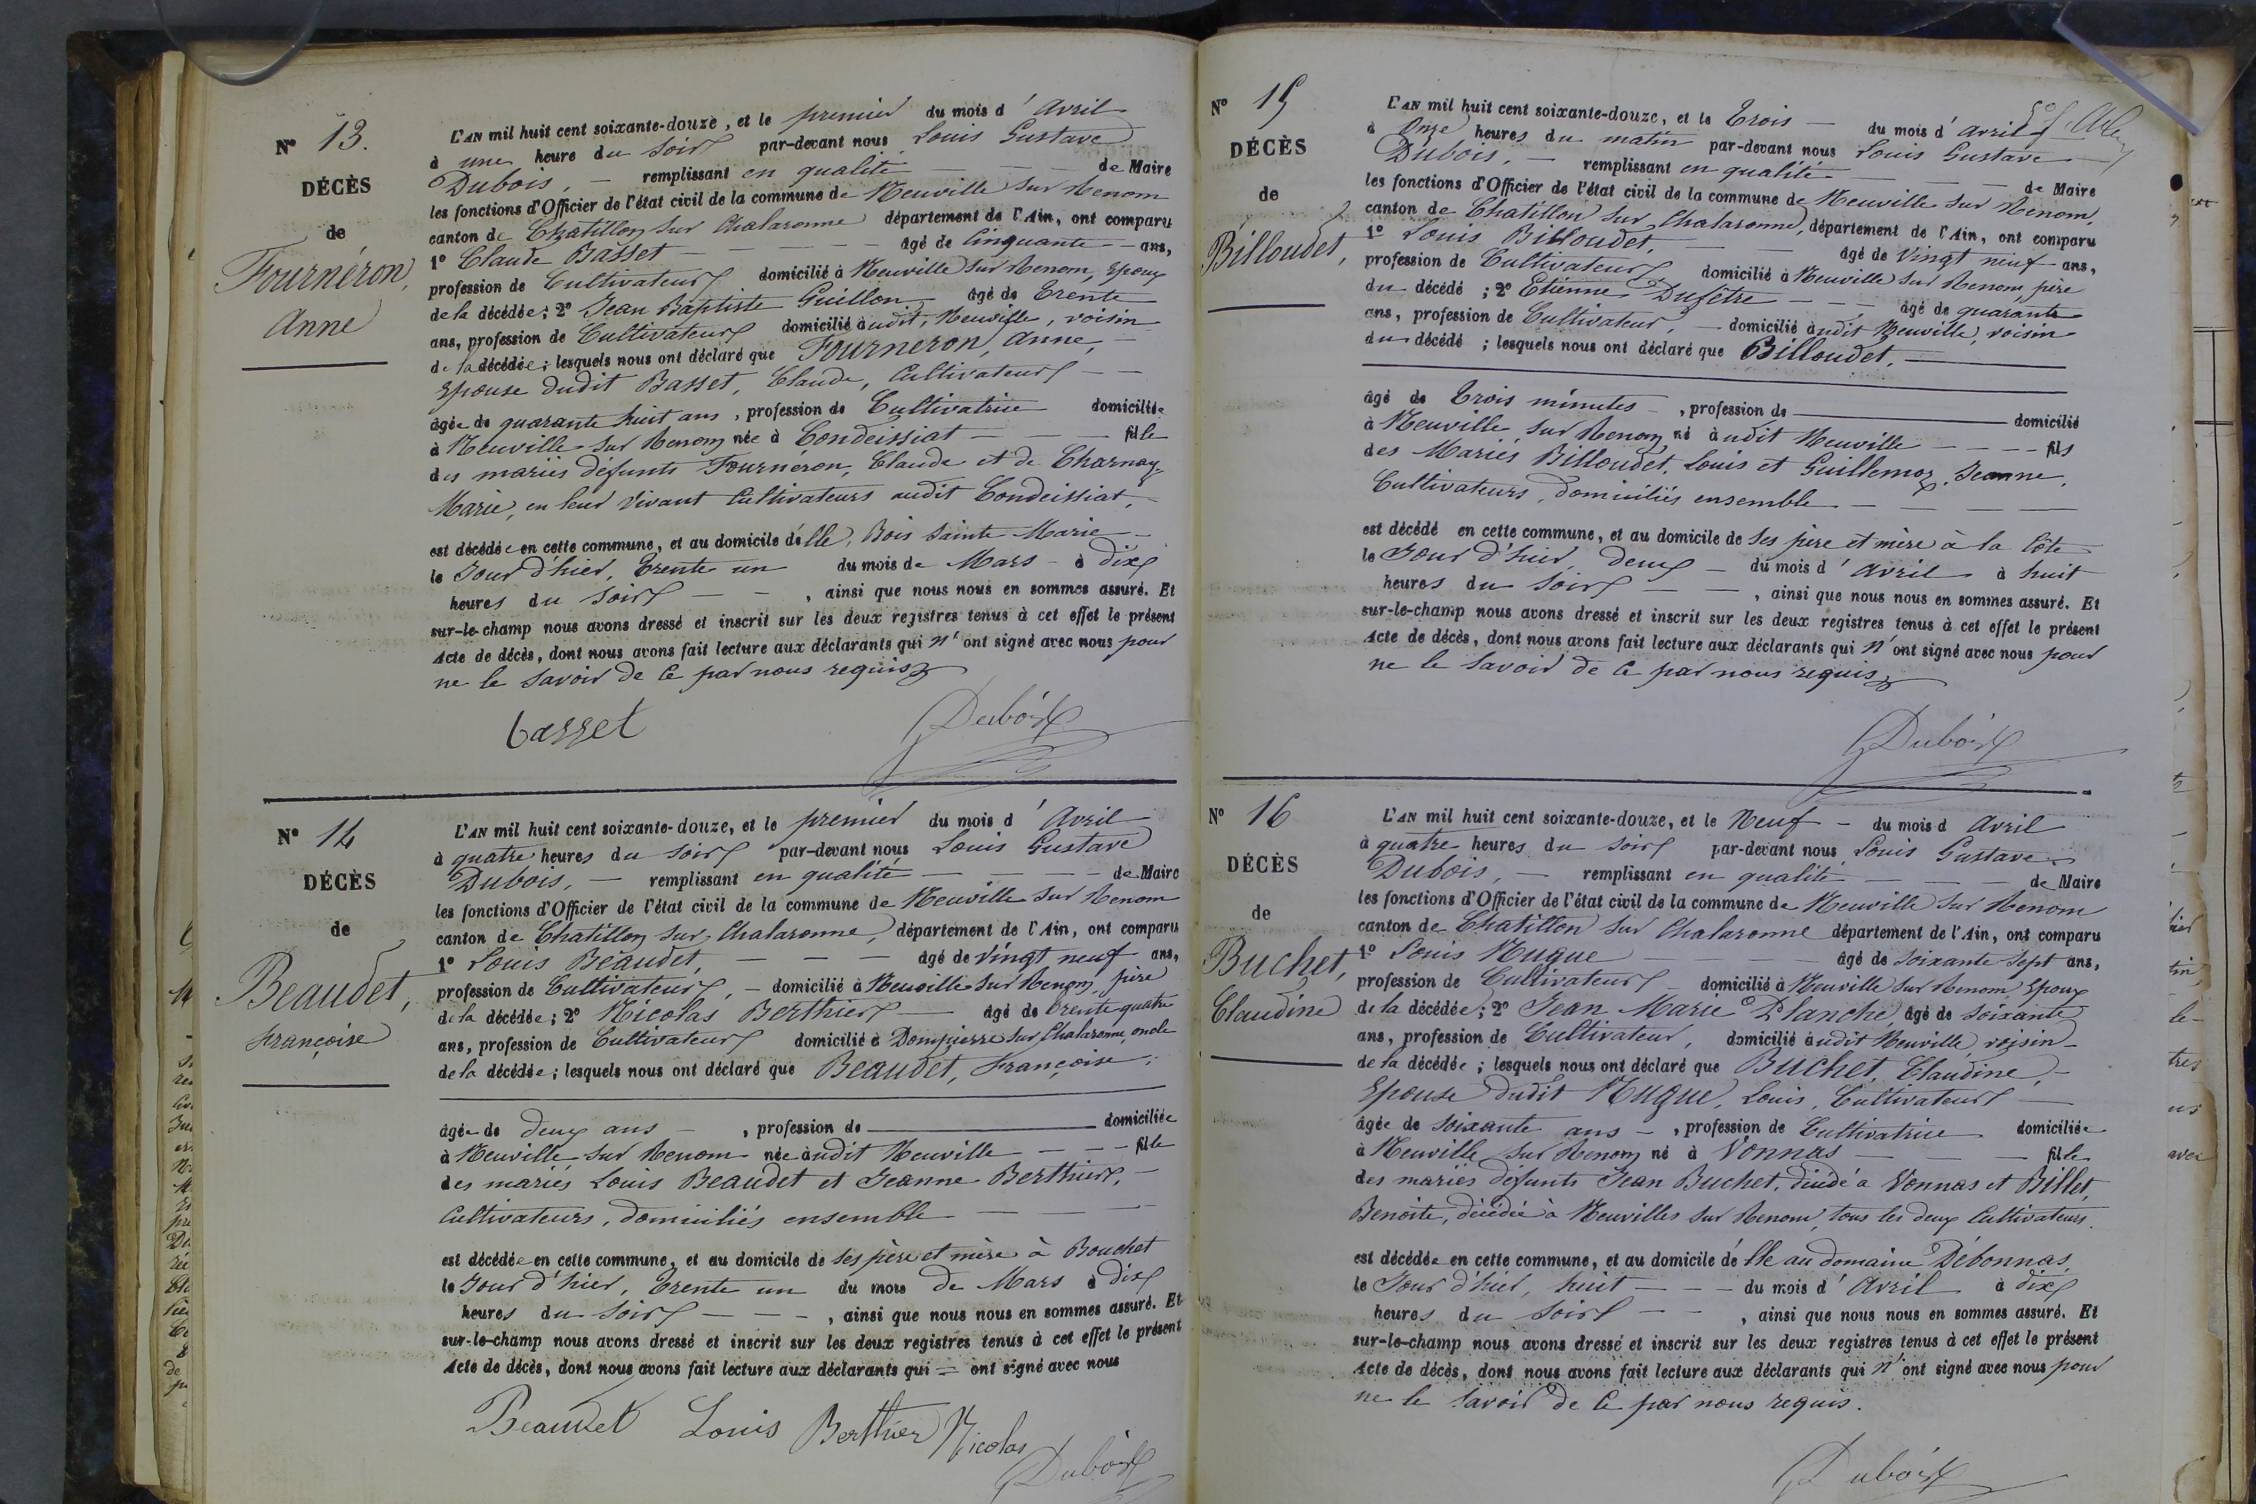 N° 13.
DÉCÈS
de
Fournéron,
Anne
L'AN mil huit cent soixante-douze, et le premier du mois d'Avril
à une heure du soir par-devant nous Louis Gustave
Dubois, — remplissant en qualité — — de Maire
les fonctions d'Officier de l'état civil de la commune de Neuville sur Renom
canton de Chatillon sur Chalaronne département de l'Ain, ont comparu
1° Claude Basset — — — — âgé de Cinquante — ans,
profession de Cultivateur domicilié à Neuville sur Renom, Epoux
de la décédée ; 2° Jean Baptiste Guillon — âgé de Trente
ans, profession de Cultivateur domicilié audit, Neuville, voisin
de la décédée ; lesquels nous ont déclaré que Fournéron, Anne, —
Epouse dudit Basset, Claude, Cultivateur — —
âgée de quarante huit ans, profession de Cultivatrice domiciliée
à Neuville sur Renom née à Condeissiat — — fille
des mariés défunts Fournéron, Claude et de Charnay
Marie, en leur vivant Cultivateurs audit Condeissiat, —
est décédée en cette commune, et au domicile d'elle, Bois Sainte Marie —
le Jour d'hier, Trente un du mois de Mars — à dix
heures du soir — — , ainsi que nous nous en sommes assuré. Et
sur-le-champ nous avons dressé et inscrit sur les deux registres tenus à cet effet le présent
Acte de décès, dont nous avons fait lecture aux déclarants qui n'ont signé avec nous pour
ne le savoir de ce par nous requis
basset Dubois
N° 14
DÉCÈS
de
Beaudet,
Françoise
L'AN mil huit cent soixante-douze, et le premier du mois d'Avril
à quatre heures du soir par-devant nous Louis Gustave
Dubois, — remplissant en qualité — — — de Maire
les fonctions d'Officier de l'état civil de la commune de Neuville sur Renom
canton de Chatillon sur Chalaronne, département de l'Ain, ont comparu
1° Louis Beaudet, — — — âgé de Vingt neuf ans,
profession de Cultivateur, — domicilié à Neuville sur Renom, père
de la décédée ; 2° Nicolas Berthier — âgé de trente quatre
ans, profession de Cultivateur domicilié à Dompierre sur Chalaronne, oncle
de la décédée ; lesquels nous ont déclaré que Beaudet, Françoise, —
âgée de deux ans — , profession de — domiciliée
à Neuville sur Renom née audit Neuville — — fille
des mariés Louis Beaudet et Jeanne Berthier, —
Cultivateurs, domiciliés ensemble — — —
est décédée en cette commune, et au domicile de ses père et mère à Bouchet
le Jour d'hier, Trente un du mois de Mars à dix
heures du soir — — , ainsi que nous nous en sommes assuré. Et
sur-le-champ nous avons dressé et inscrit sur les deux registres tenus à cet effet le présent
Acte de décès, dont nous avons fait lecture aux déclarants qui — ont signé avec nous
Beaudet Louis Berthier Nicolas
Dubois
N° 15
DÉCÈS
de
Billoudet,
L'AN mil huit cent soixante-douze, et le Trois — du mois d'Avril
à Onze heures du matin par-devant nous Louis Gustave
Dubois, — remplissant en qualité — — de Maire
les fonctions d'Officier de l'état civil de la commune de Neuville sur Renom,
canton de Chatillon sur Chalaronne, département de l'Ain, ont comparu
1° Louis Billoudet, — âgé de Vingt neuf ans,
profession de Cultivateur domicilié à Neuville sur Renom, père
du décédé ; 2° Etienne Dufêtre — — — âgé de quarante
ans, profession de Cultivateur, — domicilié audit Neuville, voisin
du décédé ; lesquels nous ont déclaré que Billoudet, —
âgé de Trois minutes — , profession de — domicilié
à Neuville sur Renom, né audit Neuville — — — fils
des Mariés Billoudet, Louis et Guillemoz, Jeanne,
Cultivateurs, domiciliés ensemble — — —
est décédé en cette commune, et au domicile de ses père et mère à la Côte
le Jour d'hier deux — du mois d'Avril à huit
heures du soir — — , ainsi que nous nous en sommes assuré. Et
sur-le-champ nous avons dressé et inscrit sur les deux registres tenus à cet effet le présent
Acte de décès, dont nous avons fait lecture aux déclarants qui n'ont signé avec nous pour
ne le savoir de ce par nous requis
Dubois
N° 16
DÉCÈS
de
Buchet,
Claudine
L'AN mil huit cent soixante-douze, et le Neuf — du mois d Avril
à quatre heures du soir par-devant nous Louis Gustave
Dubois, — remplissant en qualité — — — de Maire
les fonctions d'Officier de l'état civil de la commune de Neuville sur Renom
canton de Chatillon sur Chalaronne département de l'Ain, ont comparu
1° Louis Nugue — — — âgé de soixante sept ans,
profession de Cultivateur — domicilié à Neuville sur Renom, Epoux
de la décédée ; 2° Jean Marie Planche âgé de soixante
ans, profession de Cultivateur, domicilié audit Neuville, voisin —
de la décédée ; lesquels nous ont déclaré que Buchet, Claudine, —
Epouse dudit Nugue, Louis, Cultivateur —
âgée de soixante ans — , profession de Cultivatrice domiciliée
à Neuville sur Renom né à Vonnas — — — fille
des mariés défunts Jean Buchet, décédé à Vonnas et Billet,
Benoite, décédée à Neuvilles sur Renom, tous les deux Cultivateurs.
est décédée en cette commune, et au domicile d'elle au domaine Débonnas,
le Jour d'hier, huit — — — du mois d'Avril à dix
heures du soir — — , ainsi que nous nous en sommes assuré. Et
sur-le-champ nous avons dressé et inscrit sur les deux registres tenus à cet effet le présent
Acte de décès, dont nous avons fait lecture aux déclarants qui n'ont signé avec nous pour
ne le savoir de ce par nous requis.
Dubois